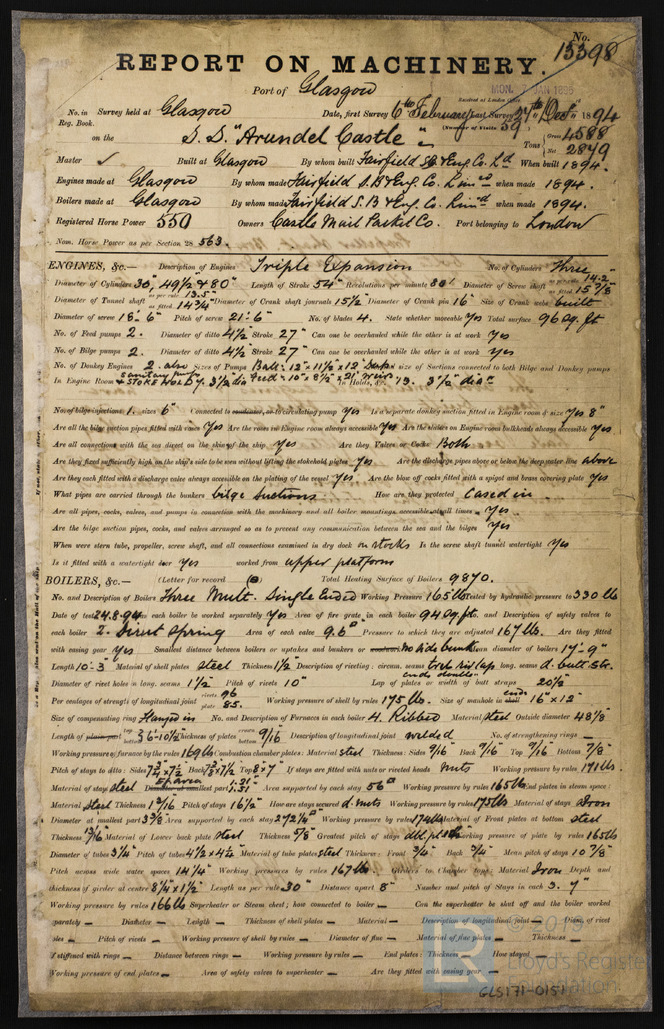 No. 15398
REPORT ON MACHINERY.
Port of Glasgow
MON. 7 JAN 1895
Received at London Office
No. in Survey held at Glasgow Date, first Survey 6th February Last Survey 27th Decr 1894
Reg. Book. (Number of Visits 39)
on the S.S. "Arundel Castle" Tons Gross 4588 Net 2849
Master ✓ Built at Glasgow By whom built Fairfield S.B. & Eng. Co. Ld When built 1894.
Engines made at Glasgow By whom made Fairfield S.B & Eng. Co. Limd when made 1894.
Boilers made at Glasgow By whom made Fairfield S.B & Eng. Co. Limd when made 1894.
Registered Horse Power 550 Owners Castle Mail Packet Co. Port belonging to London
Nom. Horse Power as per Section 28 563.
ENGINES, &c.— Description of Engines Triple Expansion No. of Cylinders Three
Diameter of Cylinders 30", 49½ & 80" Length of Stroke 54" Revolutions per minute 80 Diameter of Screw shaft as per rule 14.2" as fitted 15 7/8
Diameter of Tunnel shaft as per rule 13.5" as fitted 14 3/4" Diameter of Crank shaft journals 15½ Diameter of Crank pin 16" Size of Crank webs built
Diameter of screw 18-6" Pitch of screw 21-6" No. of blades 4. State whether moveable Yes Total surface 96 sq. ft
No. of Feed pumps 2. Diameter of ditto 4½ Stroke 27" Can one be overhauled while the other is at work Yes
No. of Bilge pumps 2. Diameter of ditto 4½ Stroke 27" Can one be overhauled while the other is at work Yes
No. of Donkey Engines 2 also Sizes of Pumps Ball: 12" x 11½ x 12" size of Suctions connected to both Bilge and Donkey pumps
In Engine Room & Stokehold 4. 3½ dia Feed = 10" x 8½" x 21" In Holds, &c. 13. 3½" dia"
No. of bilge injections 1. sizes 6" Connected to condenser, or to circulating pump Yes Is a separate donkey suction fitted in Engine room & size Yes 8"
Are all the bilge suction pipes fitted with roses Yes Are the roses in Engine room always accessible Yes Are the sluices on Engine room bulkheads always accessible Yes
Are all connections with the sea direct on the skin of the ship Yes Are they Valves or Cocks Both
Are they fixed sufficiently high on the ship's side to be seen without lifting the stokehold plates Yes Are the discharge pipes above or below the deep water line above
Are they each fitted with a discharge valve always accessible on the plating of the vessel Yes Are the blow off cocks fitted with a spigot and brass covering plate Yes
What pipes are carried through the bunkers bilge suctions How are they protected Cased in
Are all pipes, cocks, valves, and pumps in connection with the machinery and all boiler mountings, accessible at all times Yes
Are the bilge suction pipes, cocks, and valves arranged so as to prevent any communication between the sea and the bilges Yes
When were stern tube, propeller, screw shaft, and all connections examined in dry dock on stocks Is the screw shaft tunnel watertight Yes
Is it fitted with a watertight door Yes worked from upper platform
BOILERS, &c.— (Letter for record ) Total Heating Surface of Boilers 9870.
No. and Description of Boilers Three Mult. Single Ended Working Pressure 165 lb Tested by hydraulic pressure to 330 lb
Date of test 24.8.94 Can each boiler be worked separately Yes Area of fire grate in each boiler 94 sq. ft. No. and Description of safety valves to
each boiler 2. Direct Spring Area of each valve 9.6" Pressure to which they are adjusted 167 lb. Are they fitted
with easing gear Yes Smallest distance between boilers or uptakes and bunkers or woodwork no side bunk. Mean diameter of boilers 17'-9"
Length 10-3" Material of shell plates steel Thickness 1½ Description of riveting: circum. seams treb. riv. lap long. seams d. butt str.
ends double
Diameter of rivet holes in long. seams 1½ Pitch of rivets 10" Lap of plates or width of butt straps 20⅞
Per centages of strength of longitudinal joint rivets 96 plate 85. Working pressure of shell by rules 175 lb. Size of manhole in shell ends 16" x 12"
Size of compensating ring flanged in No. and Description of Furnaces in each boiler 4. Ribbed Material steel Outside diameter 48⅛
Length of plain part top bottom 6-10½ Thickness of plates crown bottom 9/16 Description of longitudinal joint welded No. of strengthening rings —
Working pressure of furnace by the rules 169 lb Combustion chamber plates: Material steel Thickness: Sides 9/16 Back 9/16 Top 9/16 Bottom 7/8
Pitch of stays to ditto: Sides 7½ x 7½ Back 7⅝ x 7½ Top 8 x 7" If stays are fitted with nuts or riveted heads Nuts Working pressure by rules 171 lb.
Material of stays steel Diameter at smallest part Ef. area 1.31" Area supported by each stay 56" Working pressure by rules 165 lb End plates in steam space:
Material Steel Thickness 1 3/16 Pitch of stays 16½ How are stays secured d. nuts Working pressure by rules 175 lb Material of stays Iron
Diameter at smallest part 3⅜ Area supported by each stay 272¼" Working pressure by rules 174 lb Material of Front plates at bottom steel
Thickness 13/16 Material of Lower back plate steel Thickness ⅝ Greatest pitch of stays dbl. plate Working pressure of plate by rules 165 lb
Diameter of tubes 3¼ Pitch of tubes 4½ x 4¼ Material of tube plates steel Thickness: Front ¾ Back ¾ Mean pitch of stays 10 ⅞
Pitch across wide water spaces 14¼ Working pressures by rules 167 lb Girders to Chamber tops: Material Iron Depth and
thickness of girder at centre 8¼ x 1½ Length as per rule 30" Distance apart 8" Number and pitch of Stays in each 3. 7"
Working pressure by rules 166 lb Superheater or Steam chest; how connected to boiler — Can the superheater be shut off and the boiler worked
separately — Diameter — Length — Thickness of shell plates — Material — Description of longitudinal joint — Diam. of rivet
holes — Pitch of rivets — Working pressure of shell by rules — Diameter of flue — Material of flue plates — Thickness —
If stiffened with rings — Distance between rings — Working pressure by rules — End plates: Thickness — How stayed
Working pressure of end plates — Area of safety valves to superheater — Are they fitted with easing gear —
© 2019
Lloyd's Register
Foundation
GLS171-0151